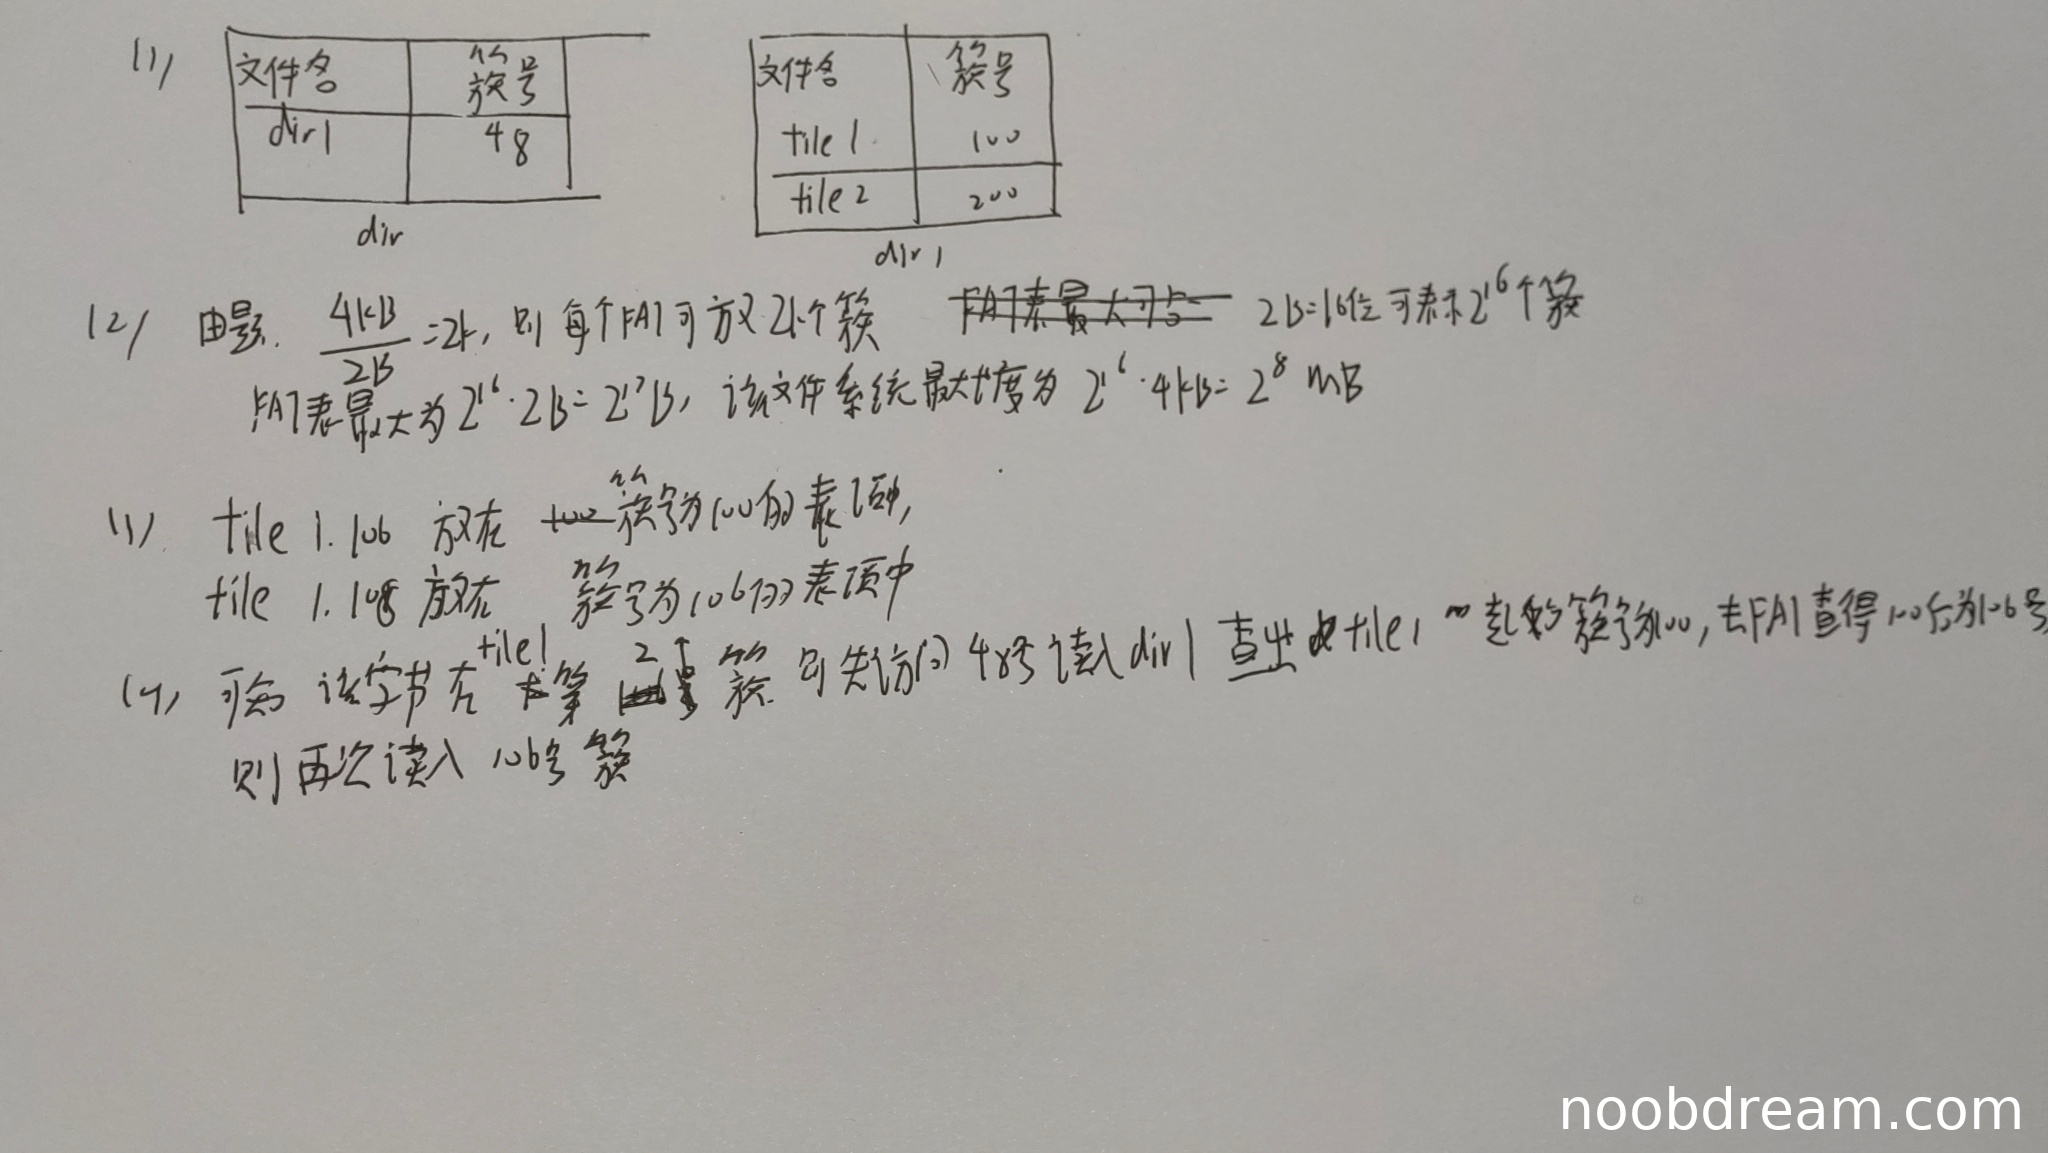 (1)
文件名 簇号
dir1 48
dir
文件名 簇号
file1 100
file2 200
dir1
(2) 由题. 4KB/2B=2K, 则每个FAT可放2K个簇 FAT表最大可占 2B=16位可表示2^16个簇
FAT表最大为2^16·2B=2^17B, 该文件系统最大长度为2^16·4KB=2^8 MB
(3) file1.106 放在 100 簇号为100的表项中,
file1.108 放在 簇号为106的表项中
(4) 可知 该字节在file1第2个簇 则先访问48号读入dir1 查出file1的簇号为100, 去FAT查得100后为106号
则再次读入106号簇
noobdream.com